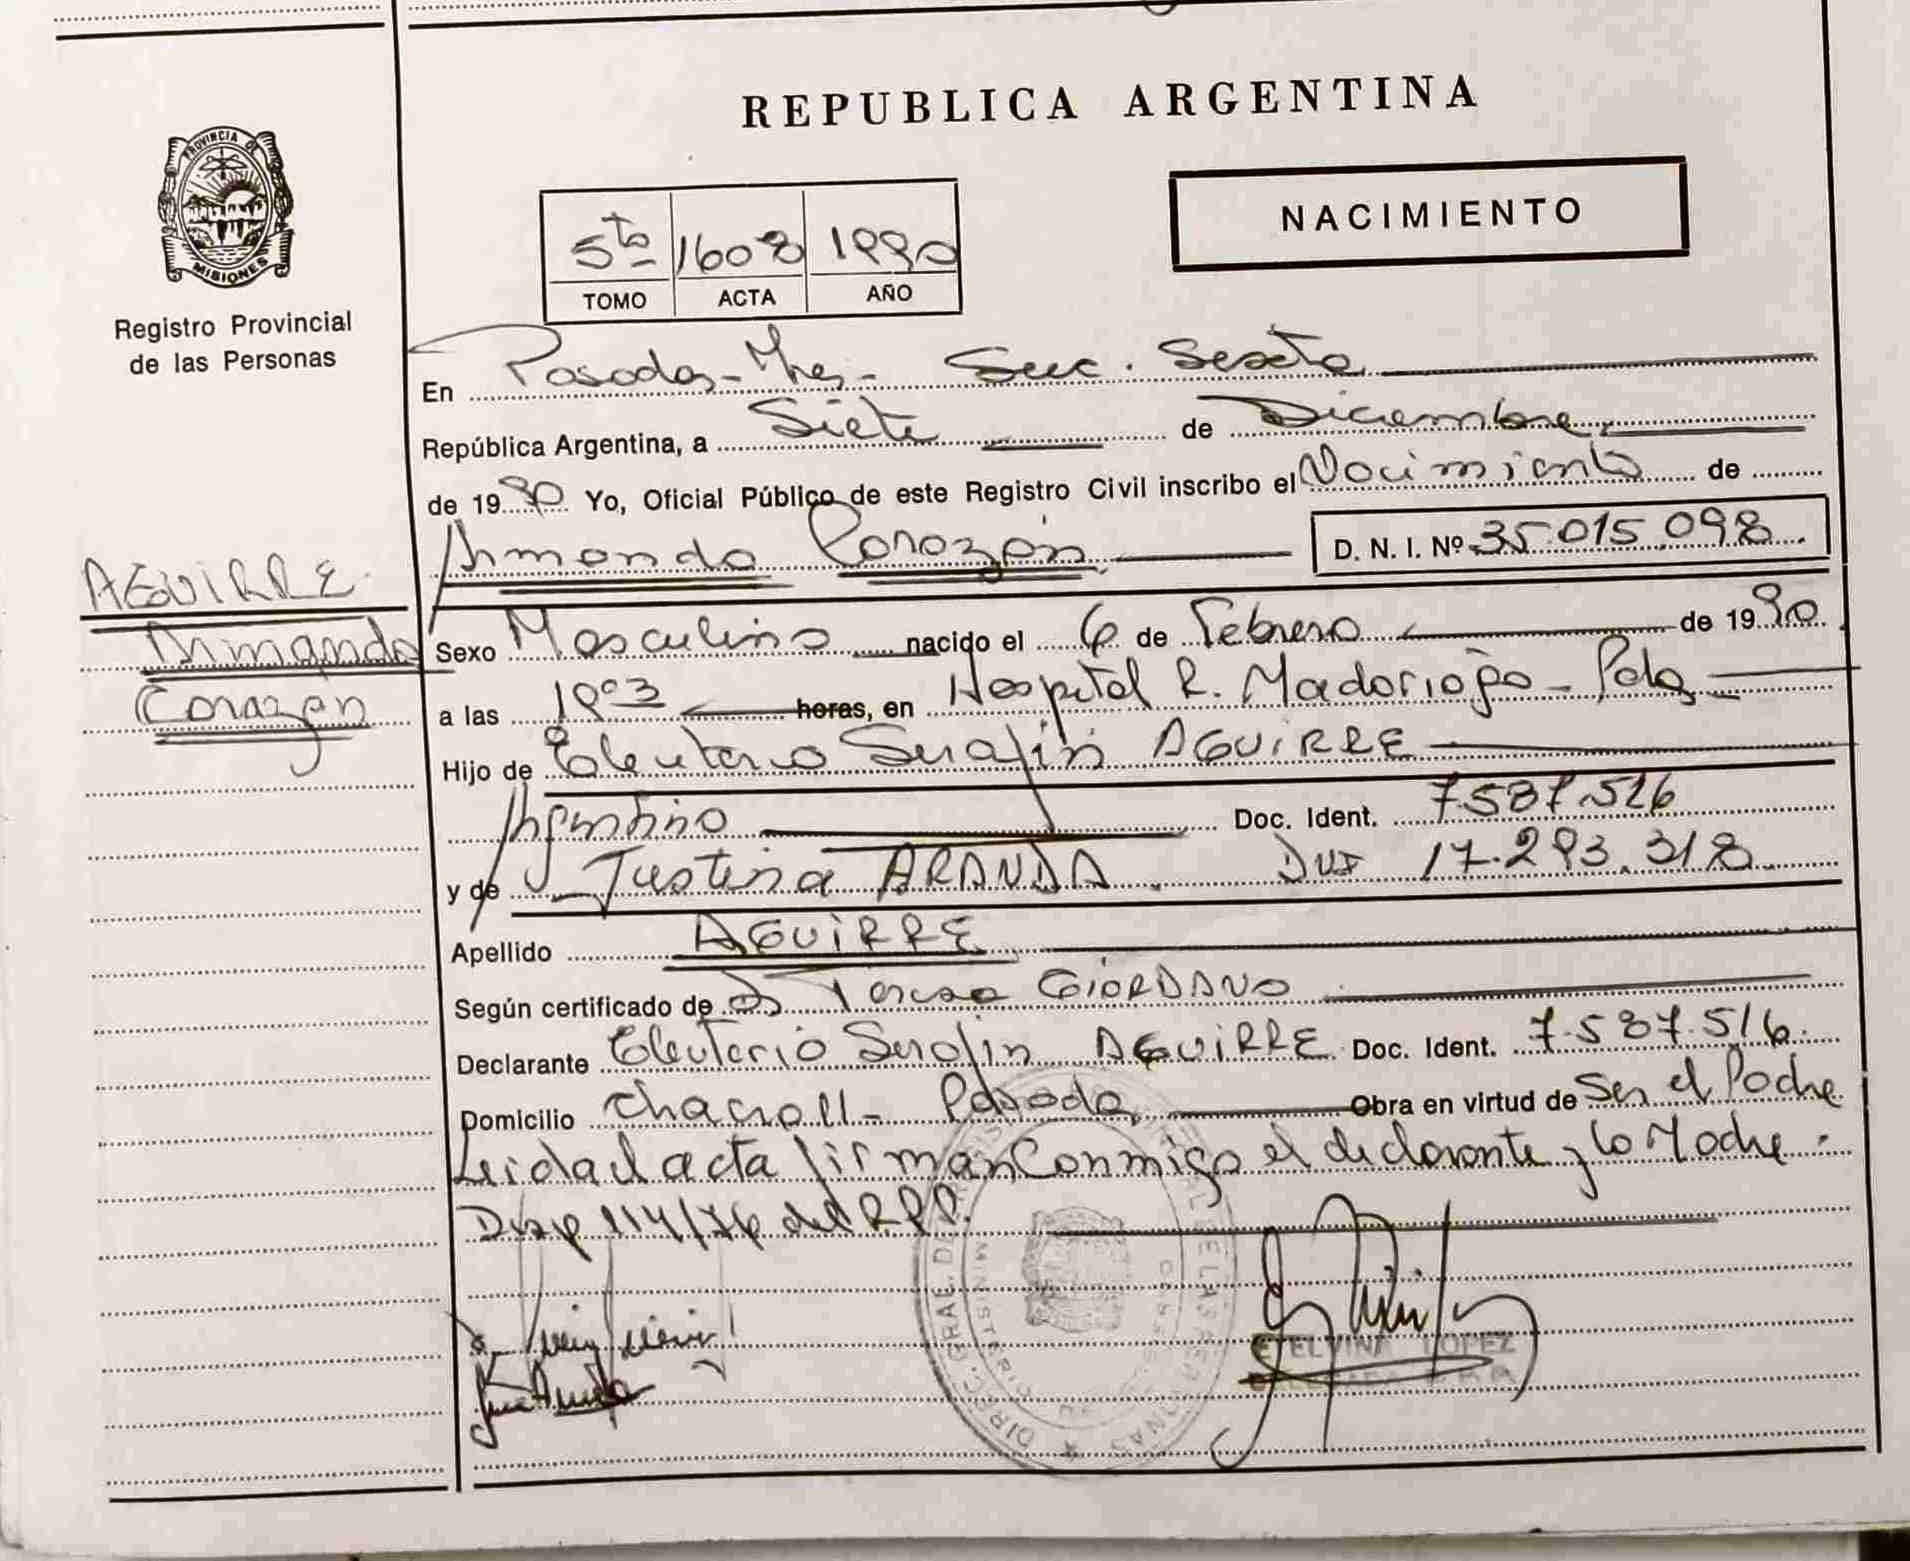 REPUBLICA ARGENTINA
PROVINCIA DE
MISIONES
Registro Provincial
de las Personas
NACIMIENTO
5to 1608 1990
TOMO ACTA AÑO
En Posadas - Mnes - Secc. Sexta
República Argentina, a Siete de Diciembre
de 1990 Yo, Oficial Público de este Registro Civil inscribo el Nacimiento de
Armando Corazón D. N. I. Nº 35.015.098
AGUIRRE
Armando
Corazón
Sexo Masculino nacido el 6 de Febrero de 1990
a las horas, en Hospital R. Madariaga - Pdas
Hijo de Eleuterio Serafin AGUIRRE
Argentino Doc. Ident. 7.587.516
y de Justina ARANDA DNI 17.293.318
Apellido AGUIRRE
Según certificado de GIORDANO
Declarante Eleuterio Serafin AGUIRRE Doc. Ident. 7.587.516
Domicilio Chacra 11 - Posadas Obra en virtud de Ser el Padre
Leida el acta firman Conmigo el declarante y la Madre
Disp 114/76 del R.P.P.
ETELVINA LOPEZ